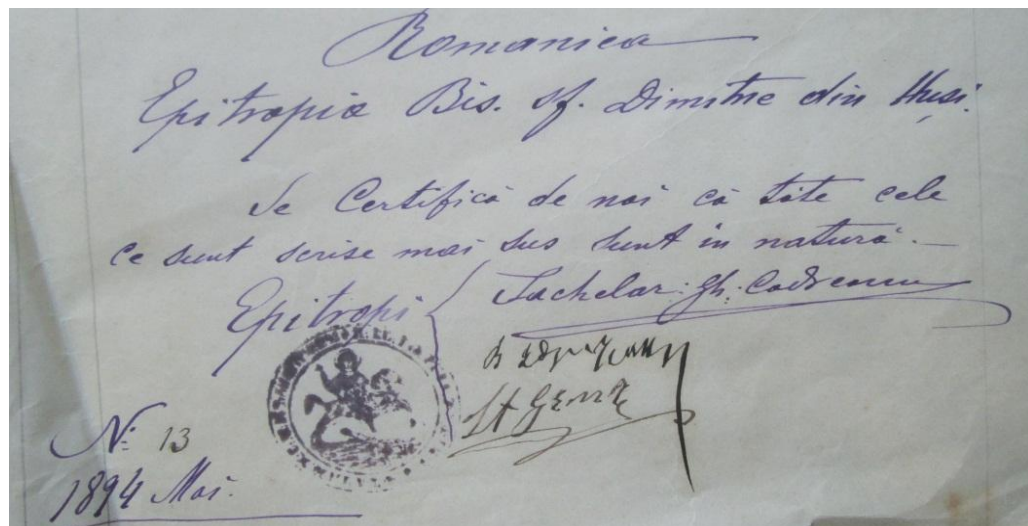 Romanica
Epitropia Bis. sf. Dimitrie din Huși.
Se Certifică de noi că tóte cele
ce sunt scrise mai sus sunt in natură. —
Epitropi { Sachelar: Gh. Codreanu
N: 13
1894 Mai.